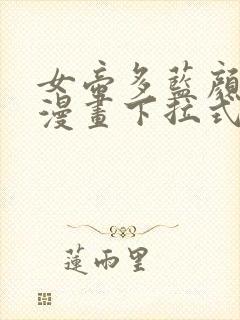 女帝多藍顏
漫畫下拉式
蓮雨里